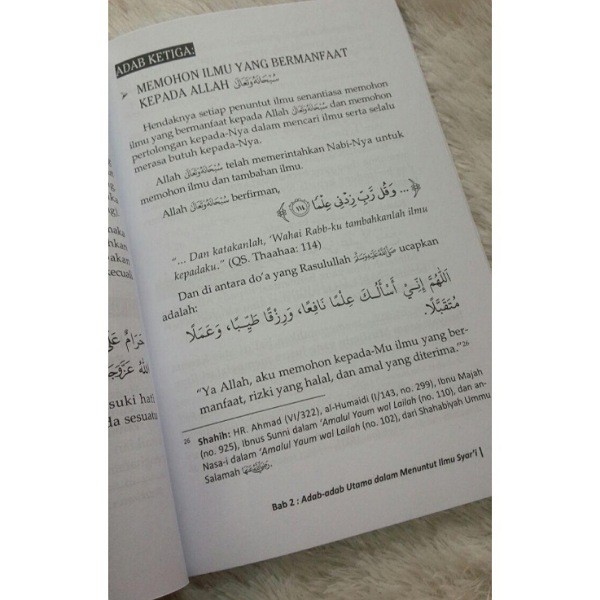 ADAB KETIGA:
➤ MEMOHON ILMU YANG BERMANFAAT
KEPADA ALLAH سُبْحَانَهُ وَتَعَالَى
Hendaknya setiap penuntut ilmu senantiasa memohon
ilmu yang bermanfaat kepada Allah سُبْحَانَهُ وَتَعَالَى dan memohon
pertolongan kepada-Nya dalam mencari ilmu serta selalu
merasa butuh kepada-Nya.
Allah سُبْحَانَهُ وَتَعَالَى telah memerintahkan Nabi-Nya untuk
memohon ilmu dan tambahan ilmu.
Allah سُبْحَانَهُ وَتَعَالَى berfirman,
﴿... وَقُل رَّبِّ زِدْنِي عِلْمًا ١١٤﴾
"... Dan katakanlah, 'Wahai Rabb-ku tambahkanlah ilmu
kepadaku.'" (QS. Thaahaa: 114)
Dan di antara do'a yang Rasulullah صَلَّى اللَّهُ عَلَيْهِ وَسَلَّمَ ucapkan
adalah:
اَللّٰهُمَّ إِنِّيْ أَسْأَلُكَ عِلْمًا نَافِعًا، وَرِزْقًا طَيِّبًا، وَعَمَلًا
مُتَقَبَّلًا.
"Ya Allah, aku memohon kepada-Mu ilmu yang ber-
manfaat, rizki yang halal, dan amal yang diterima."26
26 Shahih: HR. Ahmad (VI/322), al-Humaidi (I/143, no. 299), Ibnu Majah
(no. 925), Ibnus Sunni dalam 'Amalul Yaum wal Lailah (no. 110), dan an-
Nasa-i dalam 'Amalul Yaum wal Lailah (no. 102), dari Shahabiyah Ummu
Salamah
Bab 2 : Adab-adab Utama dalam Menuntut Ilmu Syar'i |
حَرَامٌ عَلَى
اللهُ عَزَّوَجَلَّ
suki hati
da sesuatu